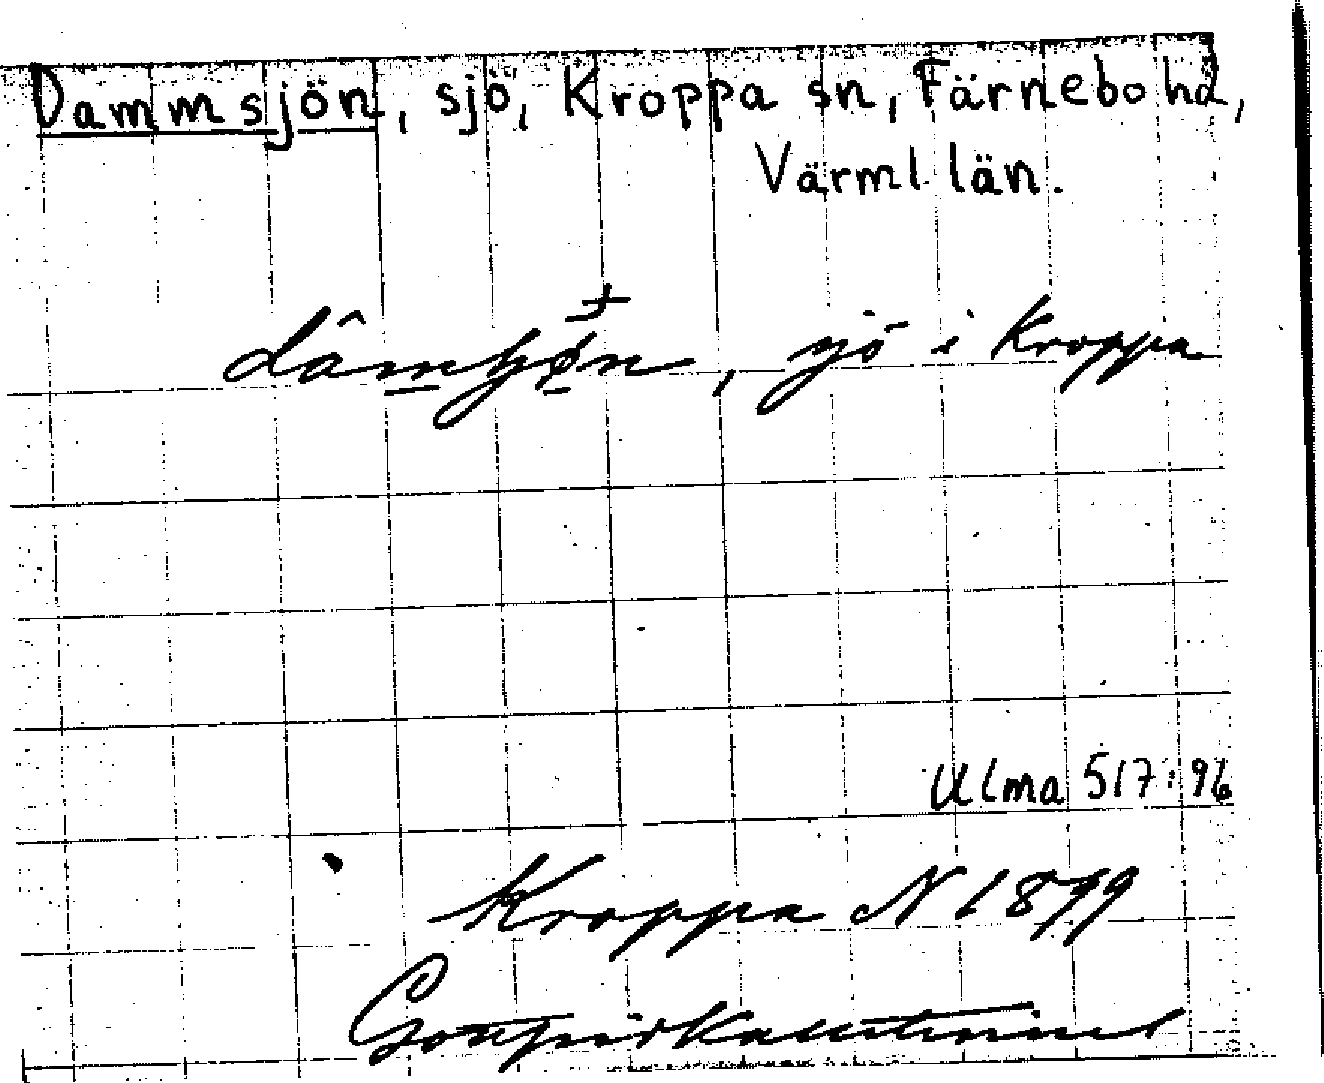 Dammsjön, sjö, Kroppa sn, Färnebo hd,
Värml. län.
sjö i Kroppa
Ulma 517:96
Kroppa N 1899